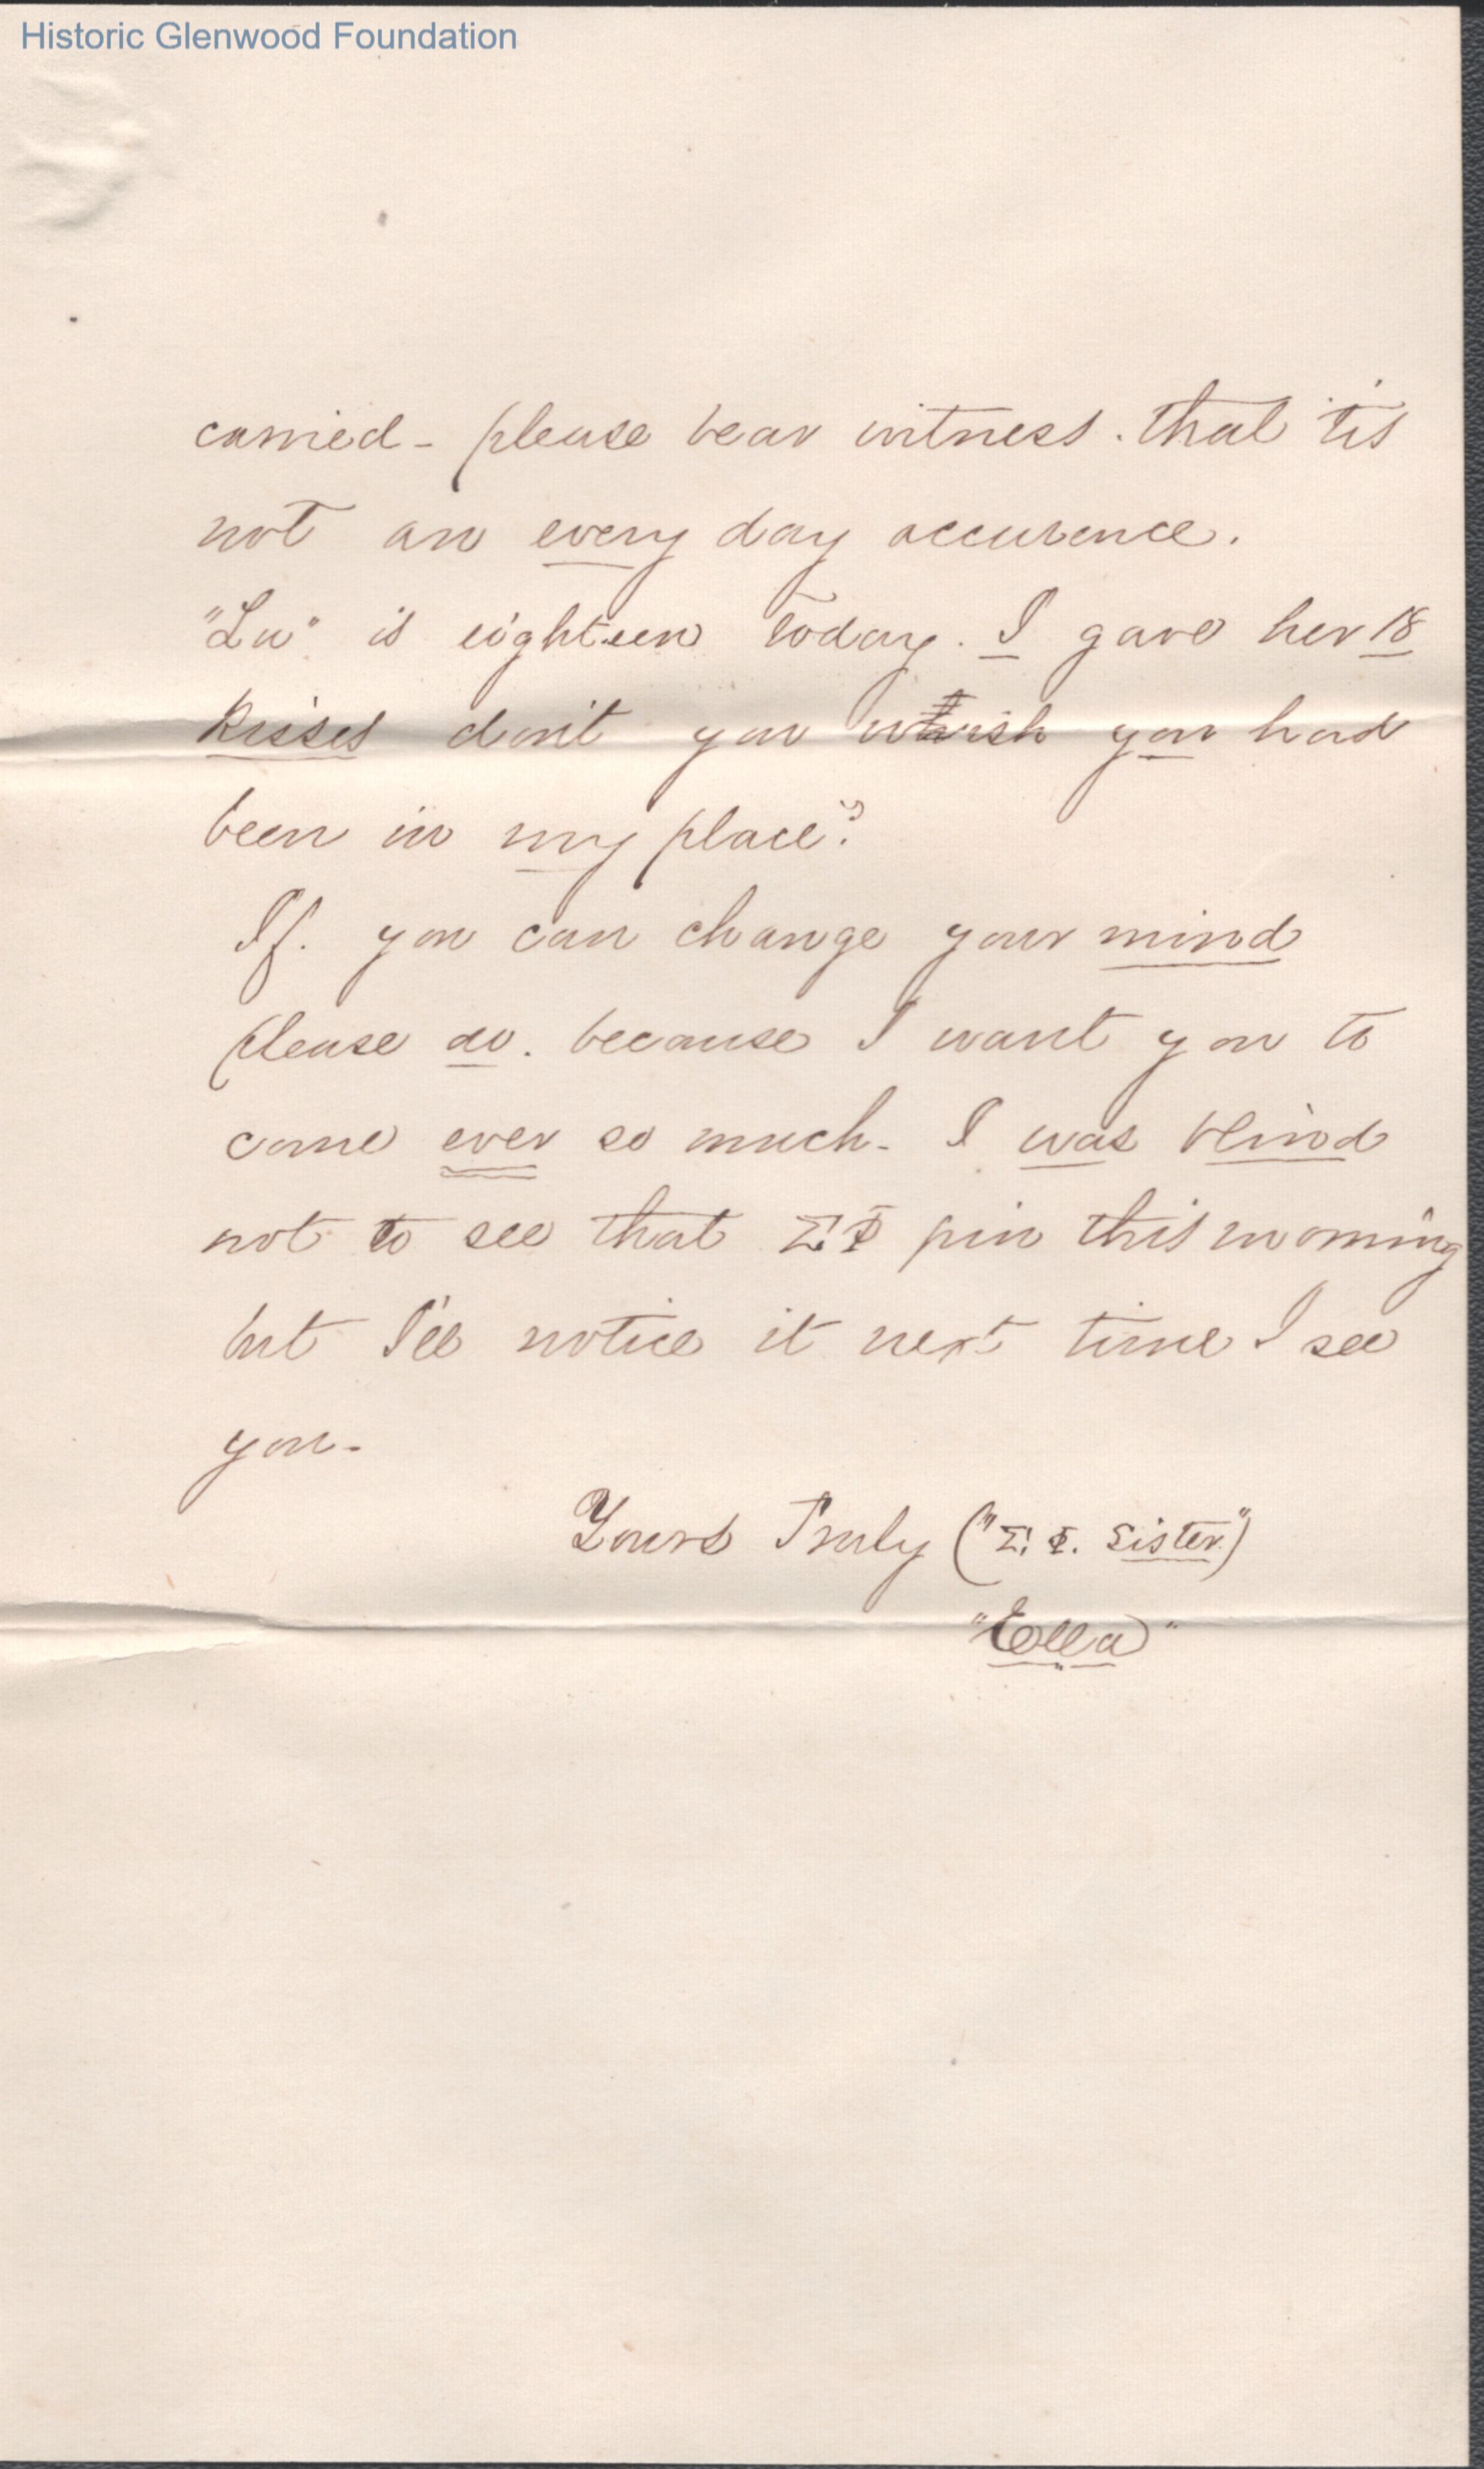 Historic Glenwood Foundation
carried - please bear witness. that 'tis
not an every day accurence.
"Lu" is eighteen today. I gave her 18
kisses don't you wish you had
been in my place?
If. you can change your mind
please do. because I want you to
come ever so much - I was blind
not to see that Σ Φ pin this morning
but I'll notice it next time I see
you -
Yours Truly ("Σ. Φ. Sister")
"Ella"